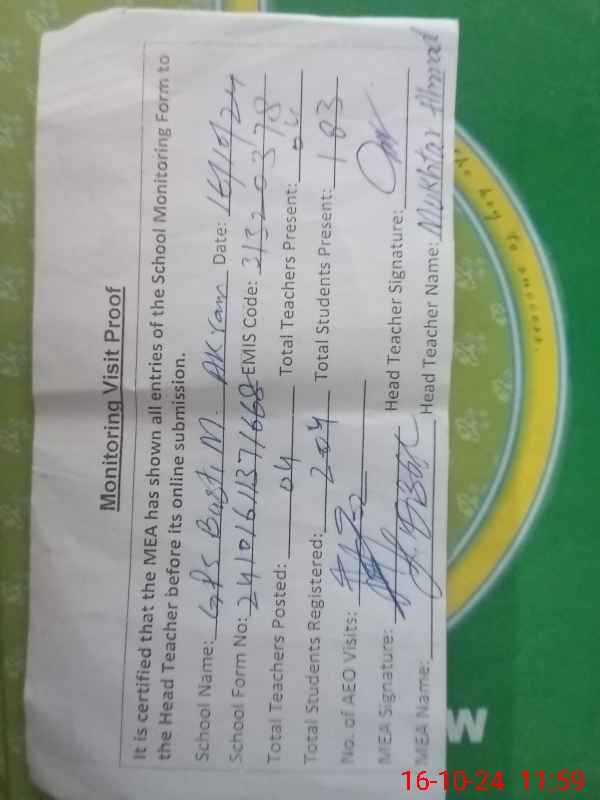 Monitoring Visit Proof
It is certified that the MEA has shown all entries of the School Monitoring Form to
the Head Teacher before its online submission.
School Name: GPS Basti M. Akram Date: 16/10/24
School Form No: EMIS Code: 31320378
Total Teachers Posted: 04 Total Teachers Present: 04
Total Students Registered: 204 Total Students Present: 183
No. of AEO Visits:
MEA Signature: Head Teacher Signature:
MEA Name: Head Teacher Name: Mukhtar Ahmad
W
16-10-24 11:59